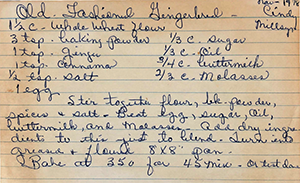 Old Fashioned Gingerbread - Nov - 1976
Cindy
1 1/2 C. Whole Wheat flour
3 tsp. baking powder 1/3 C. Sugar
1 tsp. Ginger 1/3 C. Oil
1 tsp. Cinnamon 3/4 C. buttermilk
1/2 tsp. Salt 2/3 C. Molasses
1 egg
Stir together flour, bk. powder,
spices & salt - Beat egg, sugar, Oil,
buttermilk, and Molasses. Add dry ingre
dients to this just to blend. Turn into
greased & floured 8X8" pan.
Bake at 350 for 45 min. Or test done